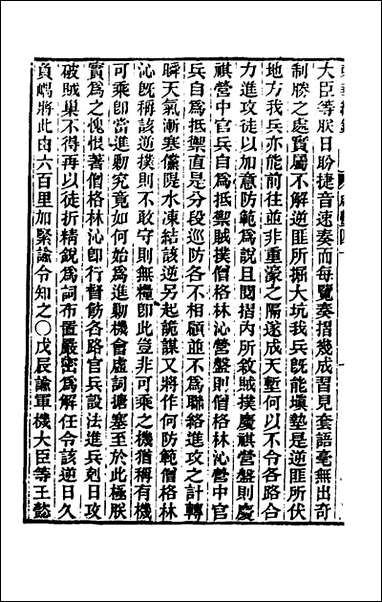 大臣等朕日盼捷音速奏而每覽奏摺幾成習見套語毫無出奇
制勝之處實屬不解逆匪所掘大坑我兵旣能塡墊是逆匪所伏
地方我兵亦能前往並非重濠之隔遂成天塹何以不令各路合
力進攻徒以加意防範爲說且閱摺內所敘賊撲慶祺營盤則慶
祺營中官兵自爲抵禦賊撲僧格林沁營盤則僧格林沁營中官
兵自爲抵禦直是分段巡防各不相顧並不爲聯絡進攻之計轉
瞬天氣漸寒儻隄水凍結該逆另起詭謀又將作何防範僧格林
沁旣稱該逆撲則不敢守則無糧卽此豈非可乘之機猶稱有機
可乘卽當進勦究竟如何始爲進勦機會虛詞搪塞至於此極朕
實爲之愧恨著僧格林沁卽行督飭各路官兵設法進兵剋日攻
破賊巢不得再以徒折精銳爲詞布置嚴密爲解任令該逆日久
負嵎將此由六百里加緊諭令知之〇戊辰諭軍機大臣等王懿